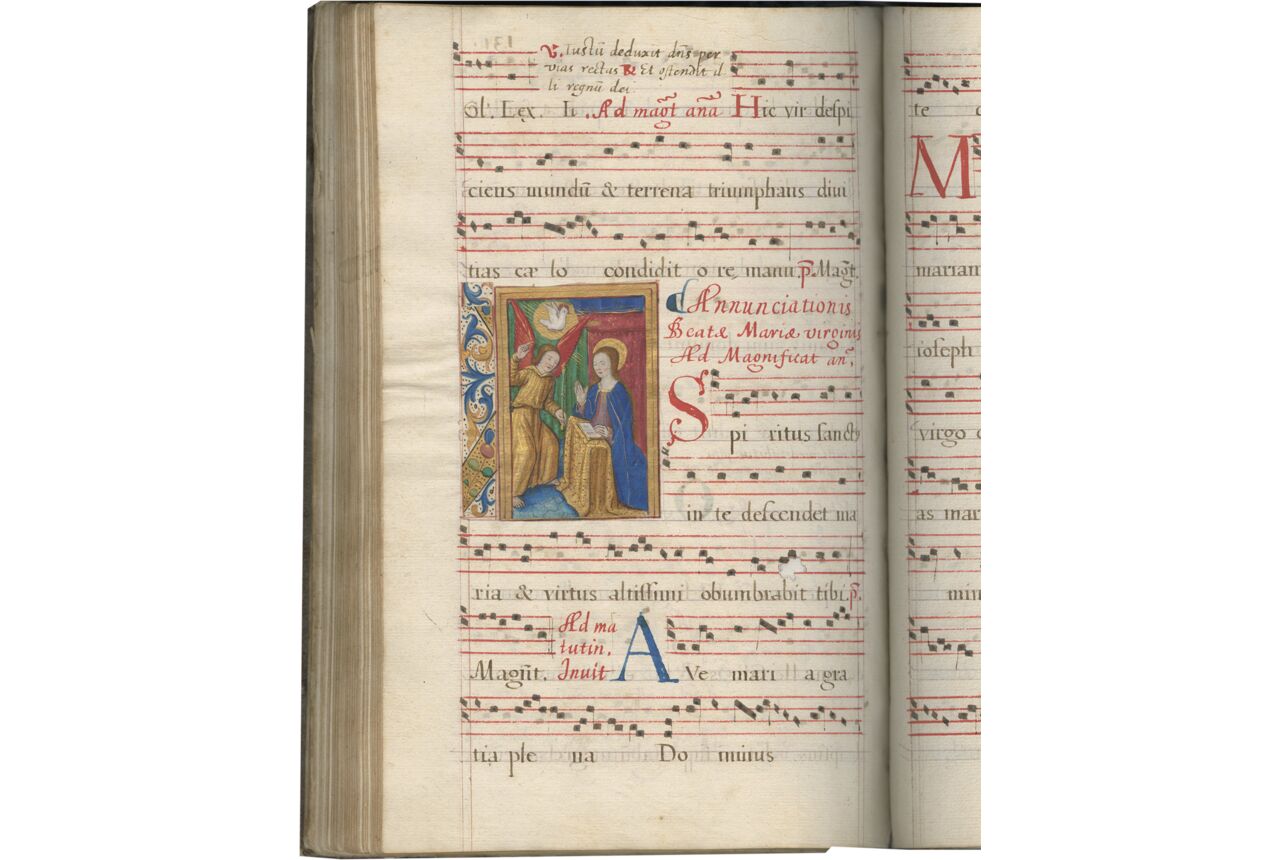 ℣. Iustū deduxit dn̄s per
vias rectas ℟ Et ostendit il
li regnū dei.
Ol. Lex. Ii. Ad mag̃t anã Hic vir despi
ciens mundū & terrena triumphans divi
tias cæ lo condidit o re, manu. p̃. Mag̃t.
Annunciationis
Beatæ Mariæ virginis
Ad Magnificat an̄.
Spi ritus sanct9
in te descendet ma
ria & virtus altissimi obumbrabit tibi. p̃.
Ad ma
tutin.
Magñt. Inuit AVe mari a gra
tia ple na Do minus
te
M
mariam
ioseph
virgo
as mar